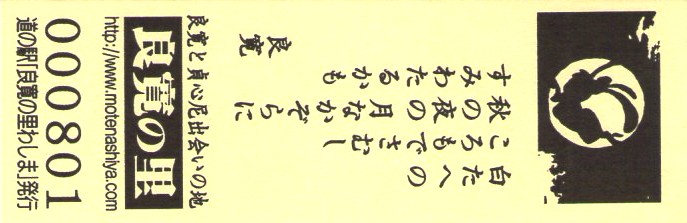 白たへの
ころもでさむし
秋の夜の 月なかぞらに
すみわたるかも
良寛
良寛と貞心尼出会いの地
良寛の里
http://www.motenashiya.com
000801
道の駅「良寛の里わしま」発行